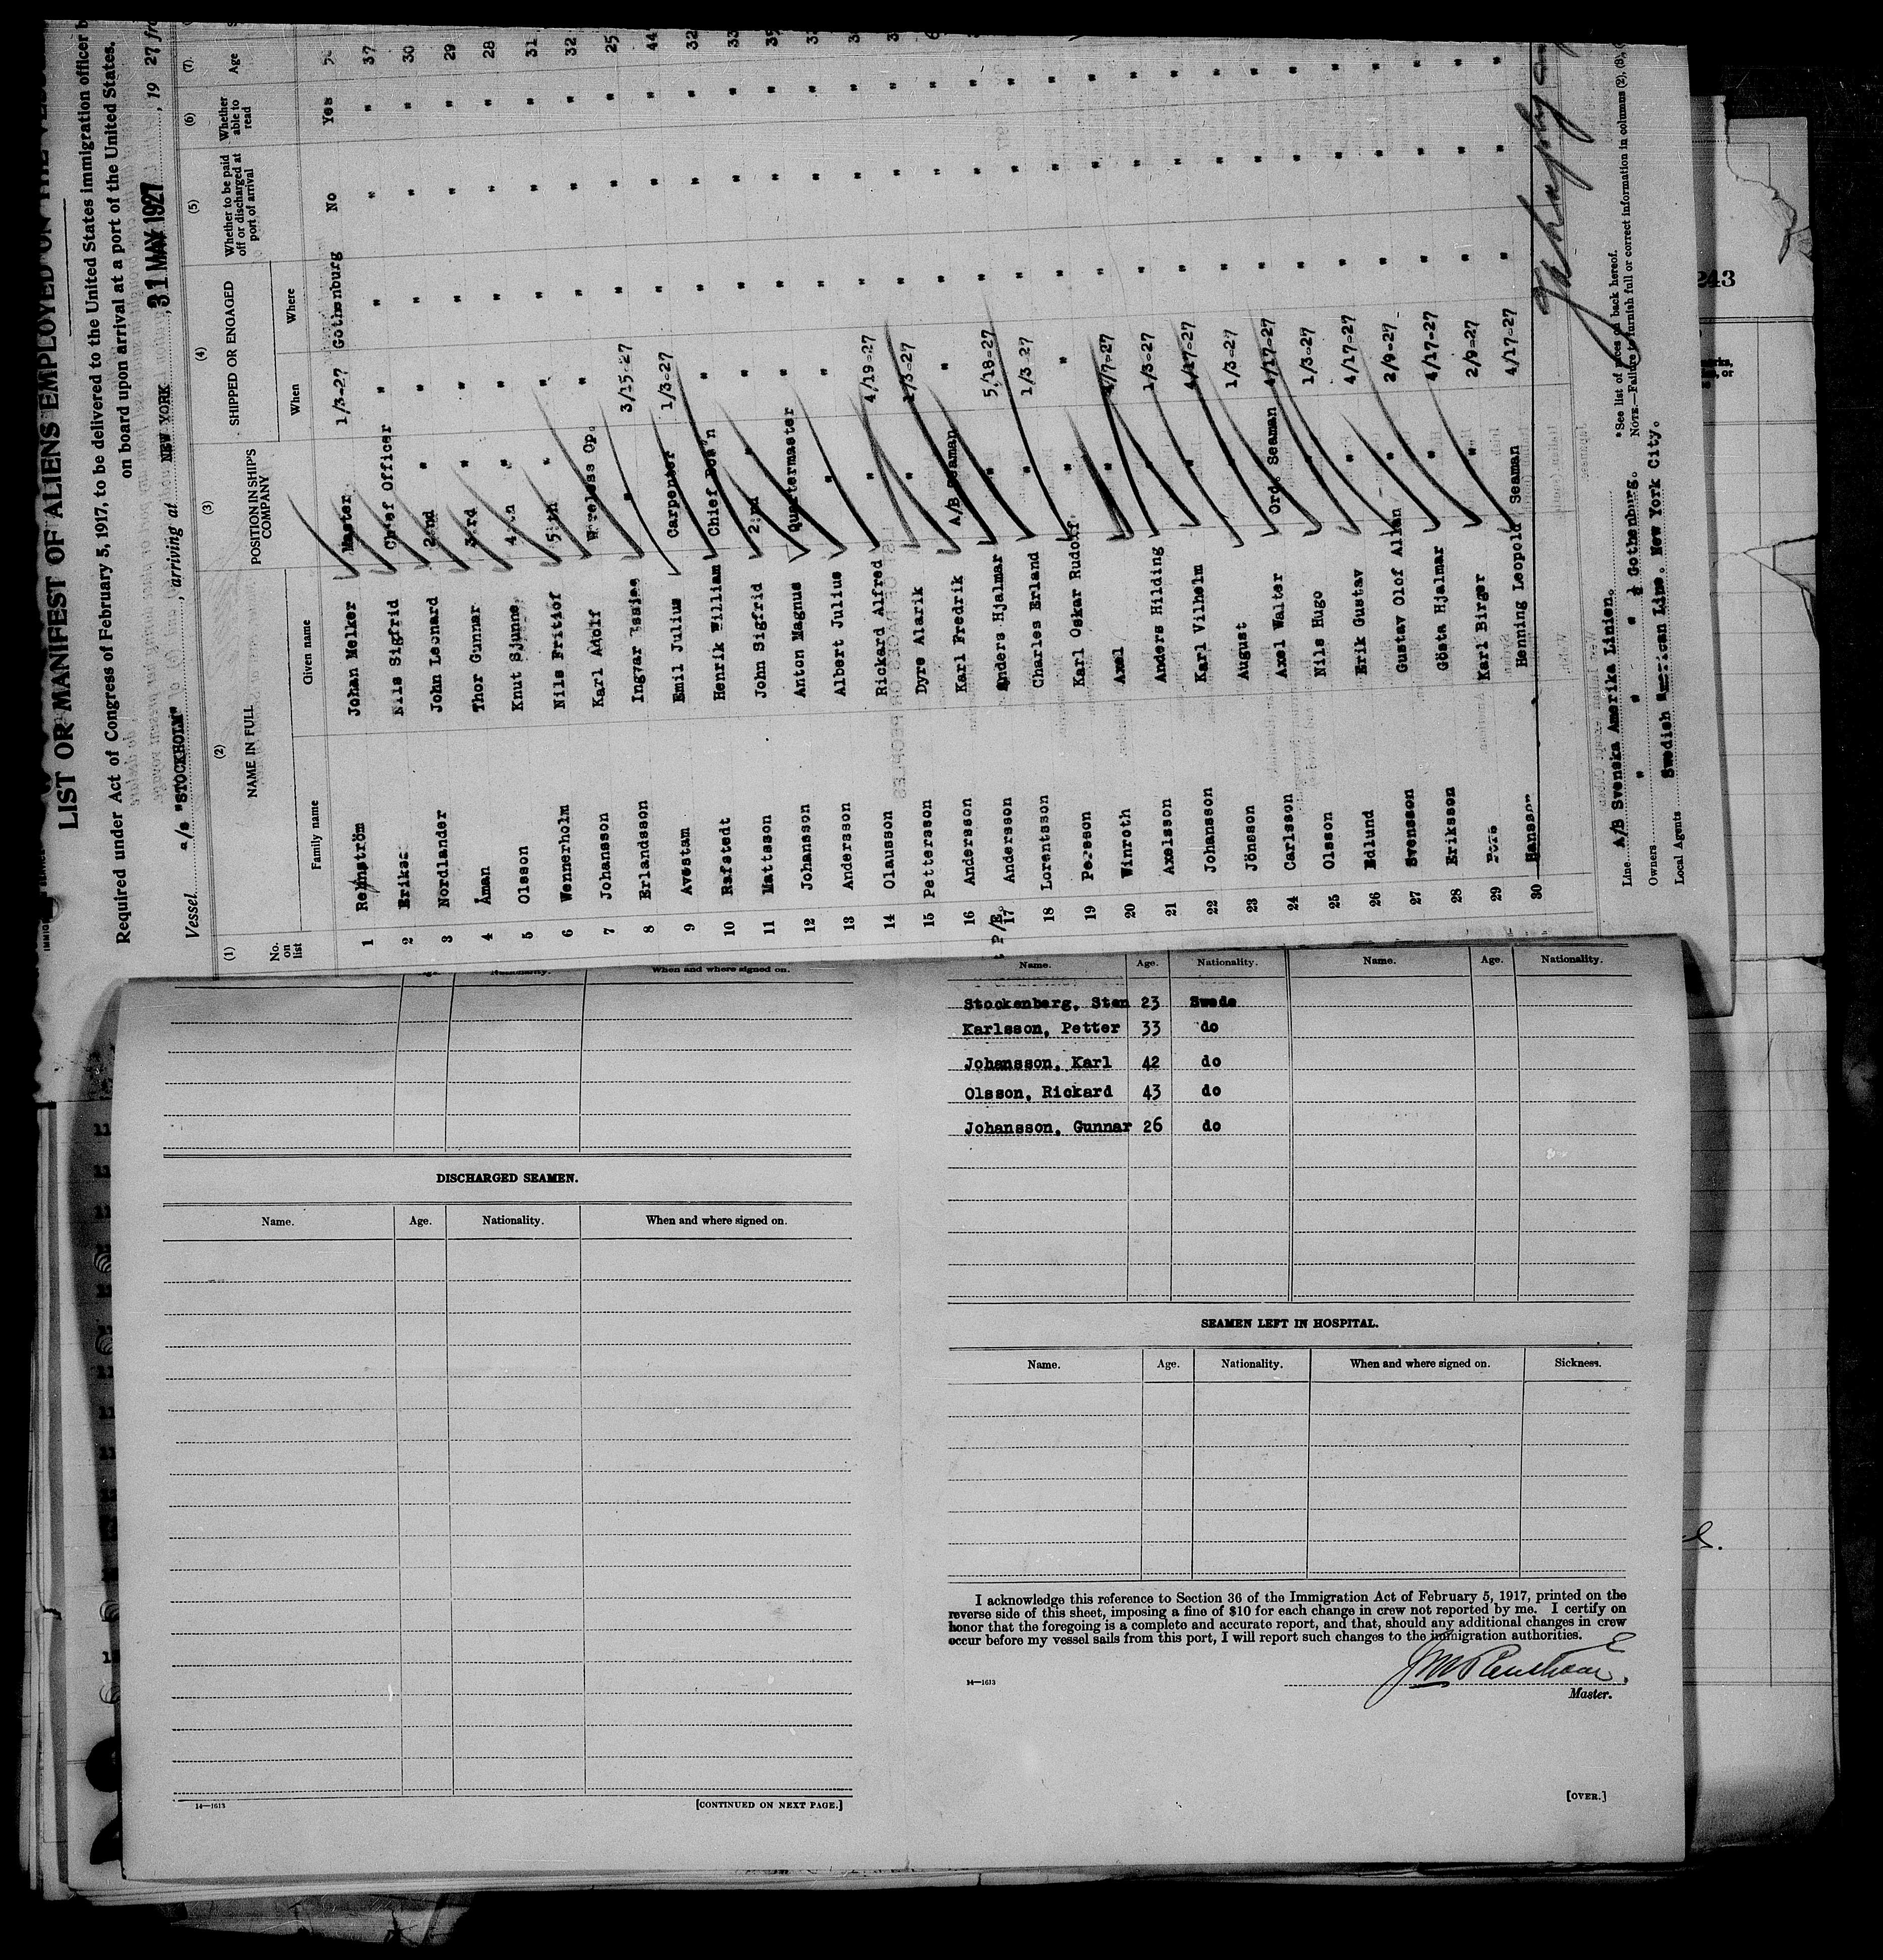 LIST OR MANIFEST OF ALIENS EMPLOYED ON THE
Required under Act of Congress of February 5, 1917, to be delivered to the United States immigration officer
on board upon arrival at a port of the United States.
Vessel s/s "STOCKHOLM", arriving at NEW YORK, 31 MAY 1927, 19 27
(1) (2) (3) (4) (5) (6) (7)
No. on list NAME IN FULL POSITION IN SHIP'S COMPANY SHIPPED OR ENGAGED Whether to be paid off or discharged at port of arrival Whether able to read Age
Family name Given name When Where
1 Johan Melker Master 1/3-27 Gothenburg No Yes
2 Nils Sigfrid Chief Officer " " " " 37
3 Nordlander John Leonard 2nd " " " " " 30
4 Åman Thor Gunnar 3rd " " " " " 29
5 Olsson Knut Sjunne 4th " " " " " 28
6 Wennerholm Nils Fritiof 5th " " " " " 31
7 Johansson Karl Adolf Wireless Op. " " " " 32
8 Erlandsson Ingvar " 3/15-27 " " " 25
9 Avestam Emil Julius Carpenter 1/3-27 " " " 44
10 Rafstedt Henrik William Chief Bos'n " " " " 32
11 Mattsson John Sigfrid 2:nd " " " " " 33
12 Johansson Anton Magnus Quartermaster " " " "
13 Andersson Albert Julius " " " " "
14 Olausson Rickard Alfred " 4/19-27 " " "
15 Pettersson Dyre Alarik " 1/3-27 " " "
16 Andersson Karl Fredrik A/B Seaman " " " "
17 Andersson Anders Hjalmar " 5/18-27 " " "
18 Lorentsson Charles Erland " 1/3-27 " " "
19 Karl Oskar Rudolf " " " " "
20 Winroth Axel " 4/17-27 " " "
21 Axelsson Anders Hilding " 1/3-27 " " "
22 Johansson Karl Vilhelm " 4/17-27 " " "
23 Jönsson August " 1/3-27 " " "
24 Carlsson Axel Walter Ord. Seaman 4/17-27 " " "
25 Olsson Nils Hugo " 1/3-27 " " "
26 Edlund Erik Gustav " 4/17-27 " " "
27 Svensson Gustav Olof Allan " 2/9-27 " " "
28 Eriksson Gösta Hjalmar " 4/17-27 " " "
29 Karl Birger " 2/9-27 " " "
30 Hansson Henning Leopold Seaman 4/17-27 " " "
Line A/B Svenska Amerika Linien. *See list of races on back hereof.
Owners " " " Gothenburg. NOTE.—Failure to furnish full or correct information in columns (2), (3),
Local Agents Swedish American Line. New York City.
243
Age. Nationality. When and where signed on.
DISCHARGED SEAMEN.
Name. Age. Nationality. When and where signed on.
14—1613 [CONTINUED ON NEXT PAGE.]
Name. Age. Nationality. Name. Age. Nationality.
Stockenberg, Sten 23 Swede
Karlsson, Petter 33 do
Johansson, Karl 42 do
Olsson, Rickard 43 do
Johansson, Gunnar 26 do
SEAMEN LEFT IN HOSPITAL.
Name. Age. Nationality. When and where signed on. Sickness.
I acknowledge this reference to Section 36 of the Immigration Act of February 5, 1917, printed on the
reverse side of this sheet, imposing a fine of $10 for each change in crew not reported by me. I certify on
honor that the foregoing is a complete and accurate report, and that, should any additional changes in crew
occur before my vessel sails from this port, I will report such changes to the immigration authorities.
14—1613
Master.
[OVER.]